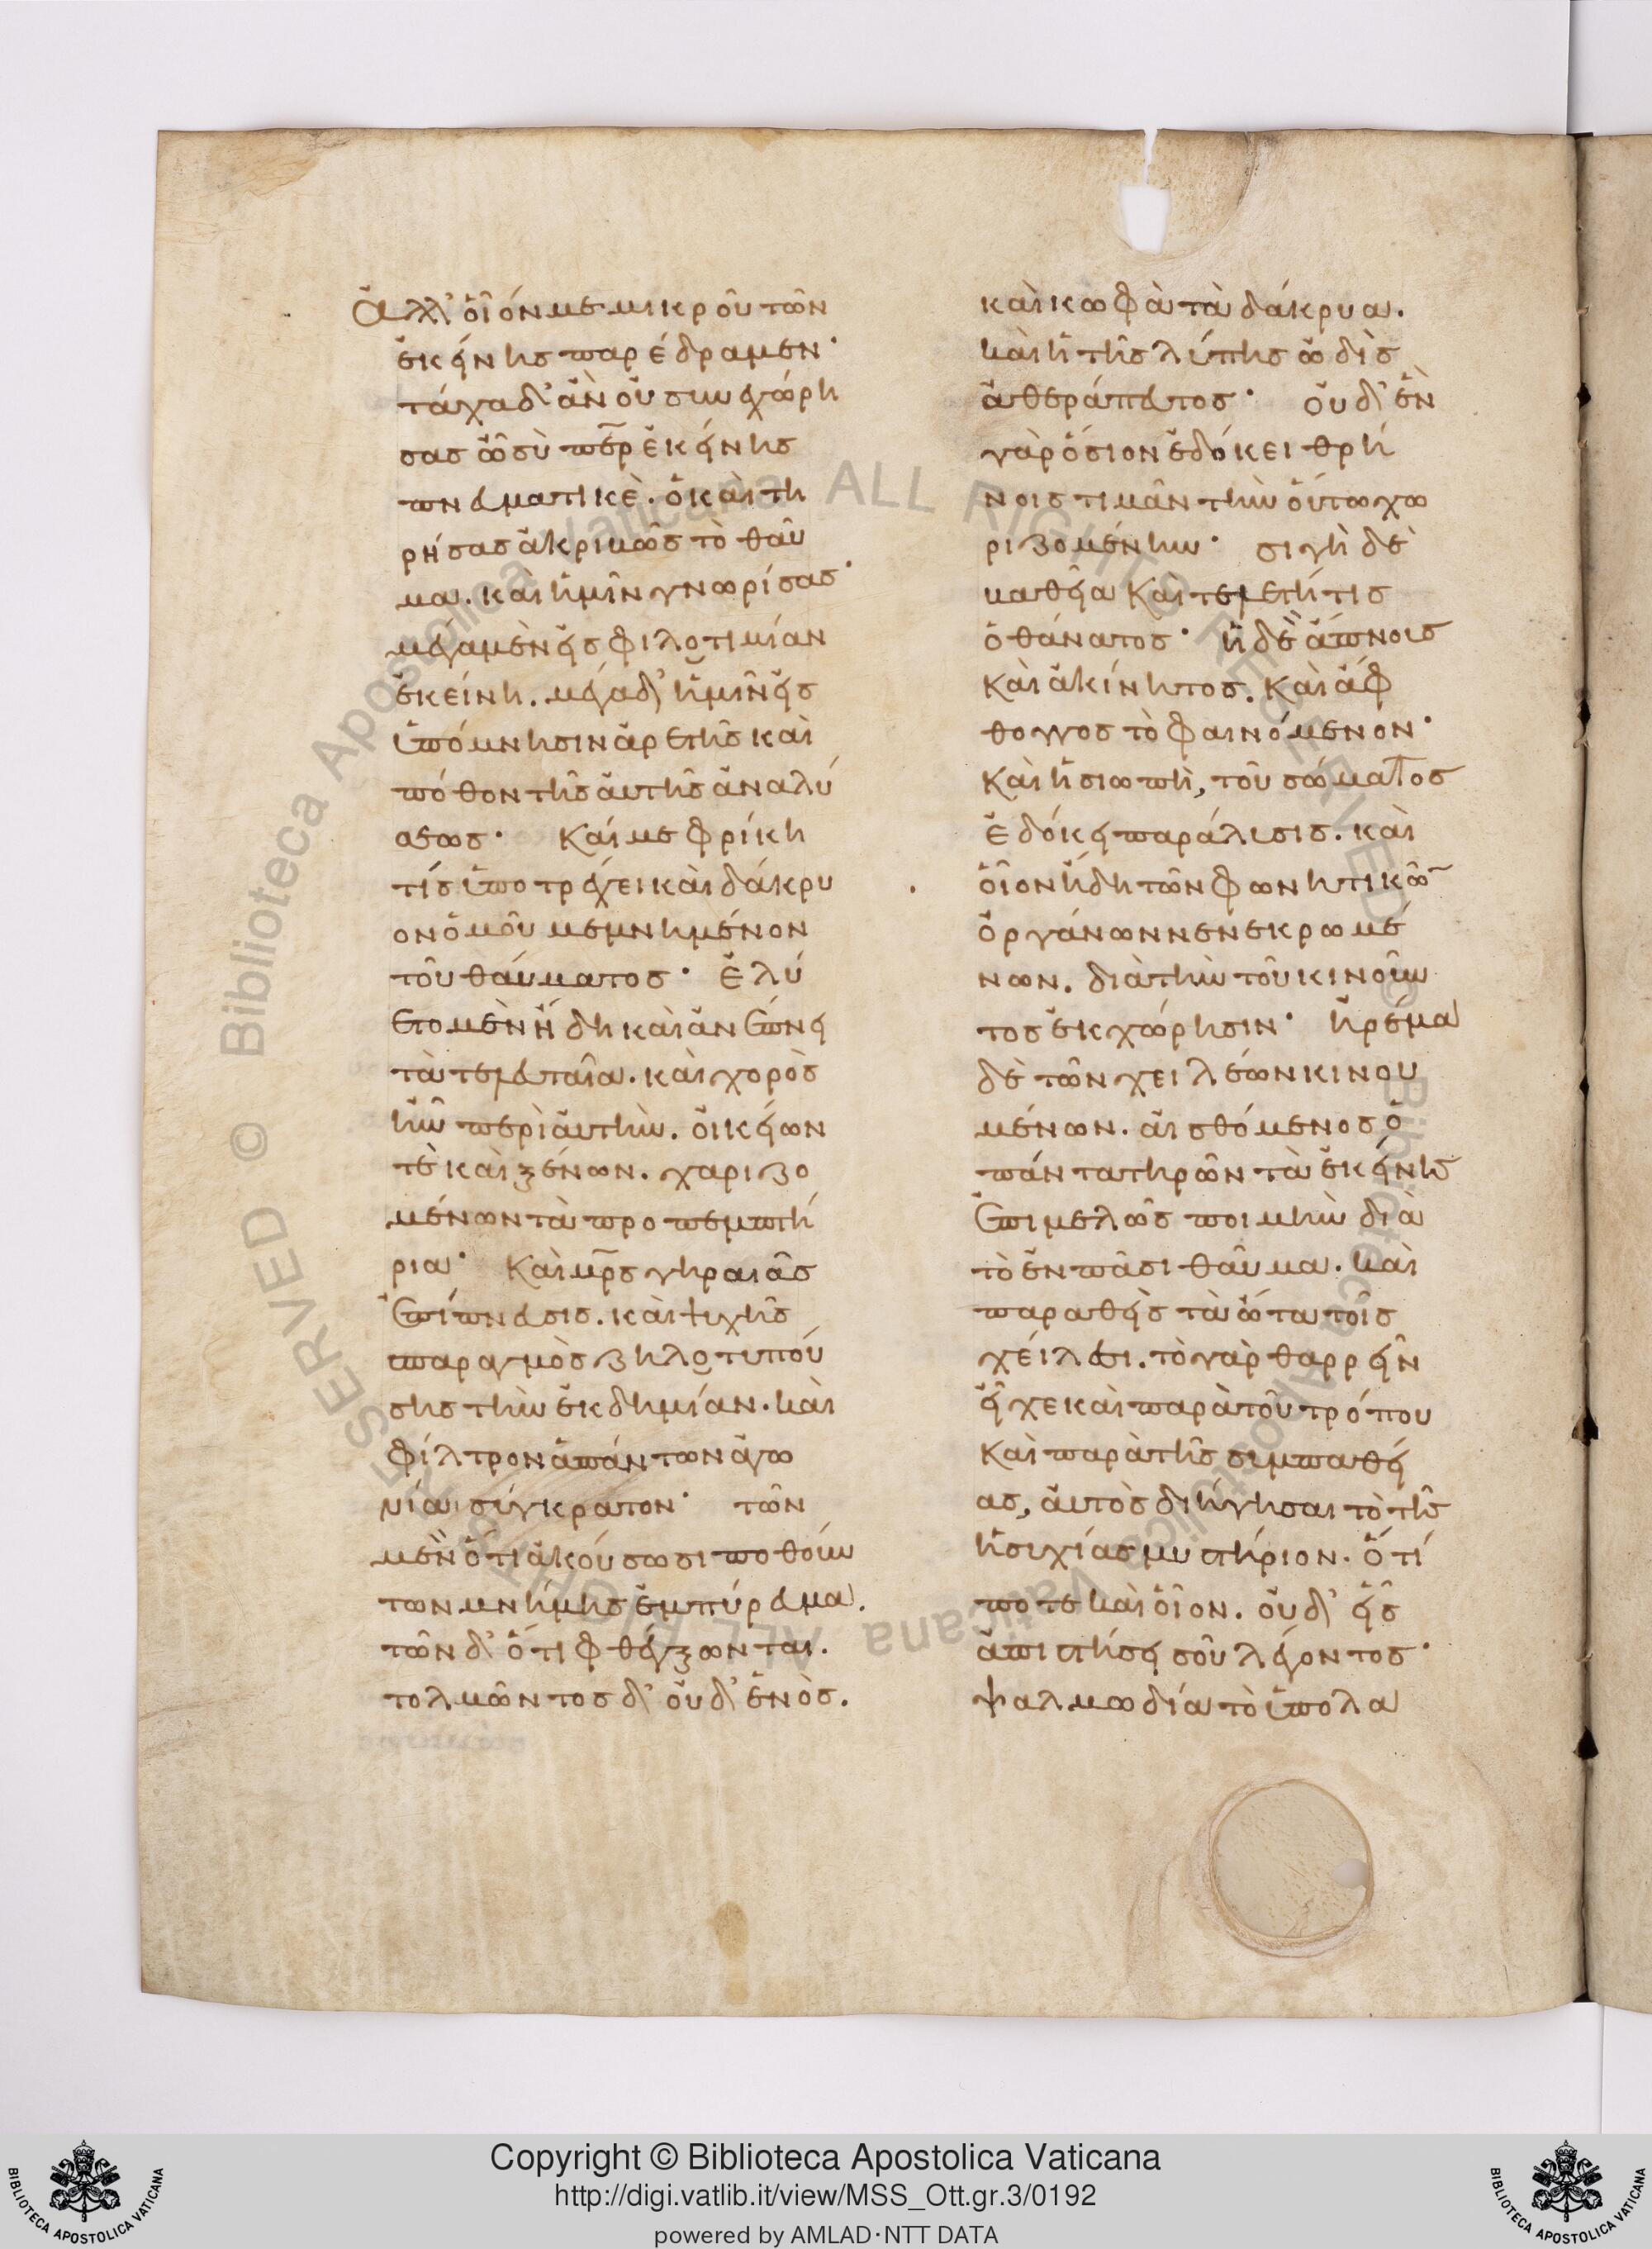 Ἀλλ' οἷόν με μικροῦ τῶν
ἐκείνης παρέδραμεν·
τάχα δ' ἂν οὐ συγχώρη
σας ὦ σὺ περ ἐκείνης
πνευματικὲ. ὁ καὶ τη
ρήσας ἀκριβῶς τὸ θαῦ
μα. καὶ ἡμῖν γνωρίσας·
μέγα μὲν εἰς φιλοτιμίαν
ἐκείνη. μέγα δ' ἡμῖν εἰς
ὑπόμνησιν ἀρετῆς καὶ
πόθον τῆς αὐτῆς ἀναλύ
σεως· Καί με φρίκη
τίς ὑποτρέχει καὶ δάκρυ
ον ὁμοῦ μεμνημένον
τοῦ θαύματος· Ἐλύ
ετο μὲν ἤδη καὶ ἀνέπνει
τὰ τελευταῖα. καὶ χορὸς
ἦν περὶ αὐτὴν. οἰκείων
τὲ καὶ ξένων. χαριζο
μένων τὰ προπεμπτή
ρια· Καὶ μρς γηραιᾶς
ἐπίπνευσις. καὶ ψυχῆς
σπαραγμὸς ζηλοτυπού
σης τὴν ἐκδημίαν. καὶ
φίλτρον ἁπάντων ἀγω
νία σύγκρατον· τῶν
μὲν ὅτι ἀκούσωσι ποθούν
των μνήμης ἐμπύρευμα.
τῶν δ' ὅτι φθέγξωνται.
τολμῶντος δ' οὐδ' ἑνὸς.
καὶ κωφὰ τὰ δάκρυα.
καὶ ἡ τῆς λύπης ὠδὶς
ἀθεράπευτος· οὐδ' ἐν
γὰρ ὅσιον ἐδόκει θρή
νοις τιμᾶν τὴν οὕτω χω
ριζομένην· σιγὴ δὲ
βαθεῖα καὶ τελετή τις
ὁ θάνατος· ἡ δὲ ἄπνοις
καὶ ἀκίνητος. καὶ ἄφ
θογγος τὸ φαινόμενον·
καὶ ἡ σιωπὴ, τοῦ σώματος
ἐδόκει παράλυσις. καὶ
οἷον ἤδη τῶν φωνητικῶ
ὀργάνων νενεκρωμέ
νων. διὰ τὴν τοῦ κινοῦν
τος ἐκχώρησιν· ἠρέμα
δὲ τῶν χειλέων κινου
μένων. αἰσθόμενος ὁ
πάντα τηρῶν τὰ ἐκείνης
ἐπιμελῶς ποιμὴν διὰ
τὸ ἐν πᾶσι θαῦμα. καὶ
παραθεὶς τὰ ὦτα τοῖς
χείλεσι. τὸ γὰρ θαρρεῖν
εἶχε καὶ παρὰ τοῦ τρόπου
καὶ παρὰ τῆς συμπαθεί
ας, αὐτὸς διήγησαι τὸ τῆς
ἡσυχίας μυστήριον. ὅτί
ποτε καὶ οἷον. οὐδ' εἷς
ἀπιστήσει σοῦ λέγοντος·
ψαλμωδία τὸ ὑπολα
Copyright © Biblioteca Apostolica Vaticana
http://digi.vatlib.it/view/MSS_Ott.gr.3/0192
powered by AMLAD·NTT DATA